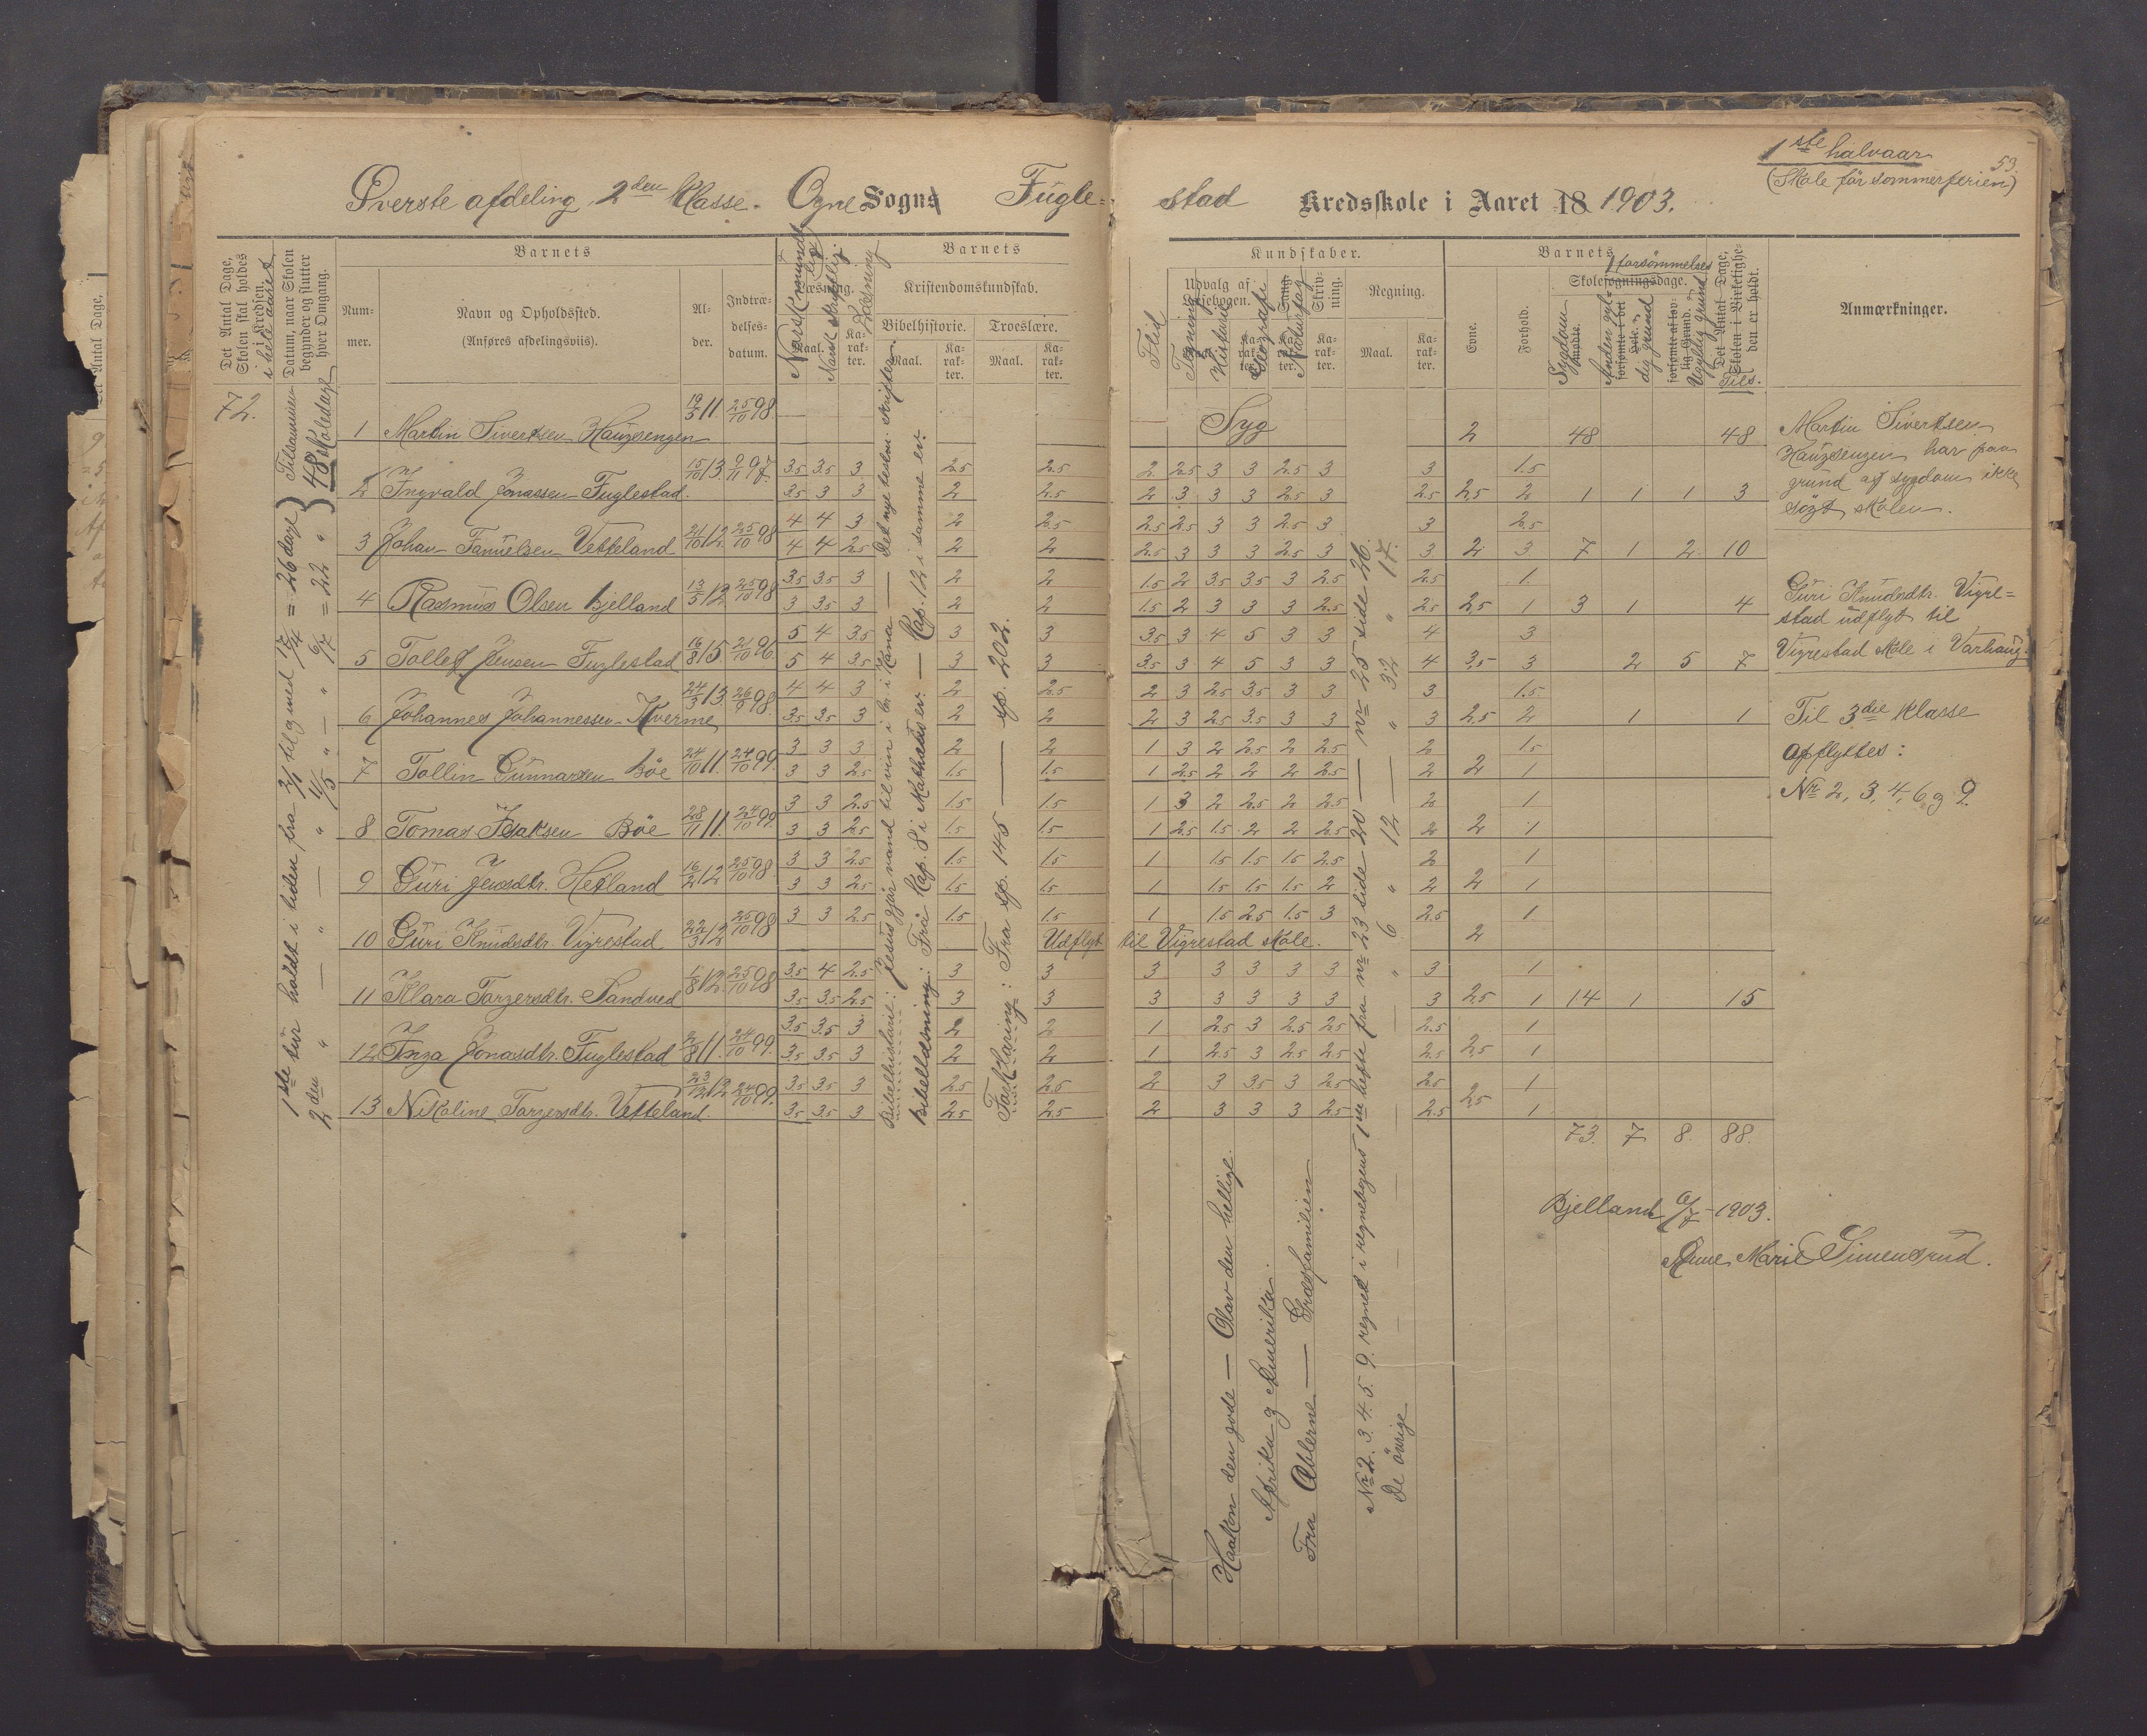 1ste halvaar
53.
(Skole før sommerferien)
Øverste afdeling, 2den Klasse. Ogne Sogns Fugle- stad Kredsskole i Aaret 18 1903.
Det Antal Dage, Skolen skal holdes i Kredsen. i hele aaret
Datum, naar Skolen begynder og slutter hver Omgang.
Barnets
Num-mer.
Navn og Opholdssted.
(Anføres afdelingsviis).
Al-der.
Indtræ-delses-datum.
Norsk mundtlig
Norsk skriftlig
Læsning.
Maal.
Ka-rak-ter.
Barnets
Kristendomskundskab.
Bibelhistorie.
Troeslære.
Maal.
Ka-rak-ter.
Maal.
Ka-rak-ter.
Kundskaber.
Flid
Udvalg af Læsebogen.
Tegning
Historie
Geografi
Sang
Naturfag
Skriv-ning.
Regning.
Maal.
Ka-rak-ter.
Barnets
Evne.
Forhold.
Skolesøgningsdage.
forsømmelses
Sygdom
Anden gyl-dig grund
Ugyldig grund
Det Antal Dage, Skolen i Virkelighe-den er holdt.
Tils.
Anmærkninger.
72.
Tilsammen
48 skoledage
1ste tur holdt i tiden fra 3/1 til og med 17/4 = 26 dage
2den " — " — " 11/5 " — " 6/7 = 22 "
1 Martin Sivertsen Haugsengen 19/3 11 25/10 98. Syg 2 48 48
2 Ingvald Jonassen Fuglestad. 15/10 13. 9/11 97. 3.5 3.5 3 2.5 2.5 2 2.5 3 3 2.5 3 3 1.5
3.5 3 3 2 2.5 2 3 3 3 2.5 3 2.5 2.5 2 1 1 1 3
3 Johan Tanuelsen Vetteland 21/10 12. 25/10 98 4 4 3 2 2.5 2.5 2.5 3 3 2.5 3 3 2.5
4 4 2.5 2 2 2.5 3 3 3 2.5 3 3 2 3 7 1 2 10
4 Rasmus Olsen Bjelland 13/5 12 25/10 98 3.5 3.5 3 2 2 1.5 2 3.5 3.5 3 2.5 2.5 1.
3 3.5 3 2 2 1.5 2 3 3 3 2.5 2.5 2.5 1 3 1 4
5 Tollef Jensen Fuglestad 16/8 15 21/10 96 5 4 3.5 3 3 3.5 3 4 5 3 3 4 3
5 4 3.5 3 3 3.5 3 4 5 3 3 4 3.5 3 2 5 7
6 Johannes Johannessen Kverme 24/3 13. 26/9 98. 4 4 3 2 2.5 2 3 2.5 3.5 3 3 3 1.5
3.5 3.5 3 2 2 2 3 2.5 3.5 3 3 3 2.5 2 1 1
7 Tollin Gunnarsen Bøe 24/10 11. 24/10 99. 3 3 3 2 2 1 3 2 2.5 2 2.5 2 1.5
3 3 2.5 1.5 1.5 1 2.5 2 2 2 2.5 2 2 1
8 Tomas Isaksen Bøe 28/11 11. 24/10 99. 3 3 2.5 1.5 1.5 1 3 2 2.5 2 2.5 2 1
3 3 2.5 1.5 1.5 1 2.5 1.5 2 2 2.5 2 2 1
9 Guri Jensdtr. Hetland 16/2 12 25/10 98. 3 3 2.5 1.5 1.5 1 1.5 1.5 1.5 2.5 2 1
3 3 2.5 1.5 1.5 1 1.5 1.5 1.5 2 2 2 1
10 Guri Knudsdtr. Vigrestad 22/3 12 25/10 98 3 3 2.5 1.5 1.5 1 1.5 2.5 1.5 3 2.5 1
Udflyt til Vigrestad skole. 2
11 Klara Torgersdtr. Sandved 1/8 12. 25/10 98 3.5 4 2.5 3 3 3 3 3 3 3 3 1
3.5 3.5 2.5 3 3 3 3 3 3 3 3 2.5 1 14 1 15
12 Inga Jonasdtr. Fuglestad 2/8 11. 24/10 99. 3.5 3.5 3 2 2 1 2.5 3 2.5 2.5 2.5 1
3.5 3.5 3 2 2 1 2.5 3 2.5 2.5 2.5 2.5 1
13 Nikoline Torgersdtr. Vetteland. 23/12 12 24/10 99. 3.5 3.5 3 2.5 2.5 2 3 3.5 3 2.5 2.5 1
3.5 3.5 3 2.5 2.5 2 3 3 3 2.5 2.5 2.5 1
73. 7 8. 88.
Bibelhistorie: Jesus gjør vand til vin i br. i Kana — Det nye testm. skrifter.
Bibellæsning: Fra Kap. 8 i Mathæus ev. — Kap. 12 i samme ev.
Forklaring: Fra sp. 145 — sp. 202.
Haakon den gode — Olav den hellige.
Afrika og Amerika.
Fra Æblerne — Græsfamilien
No 2. 3. 4. 5. 9. regnet i regnebogens 1m hefte fra nr 23 side 20 — nr 25 side 26.
De øvrige — " 6 " 12 — " 32 " 17.
Martin Sivertsen
Haugsengen har paa
grund af sygdom ikke
søgt skolen.
Guri Knudsdtr. Vigre-
stad udflyt til
Vigrestad skole i Varhaug.
Til 3die klasse
opflyttes:
Nr 2, 3, 4, 6 og 9.
Bjelland 6/7 - 1903.
Anne Marie Simensrud.